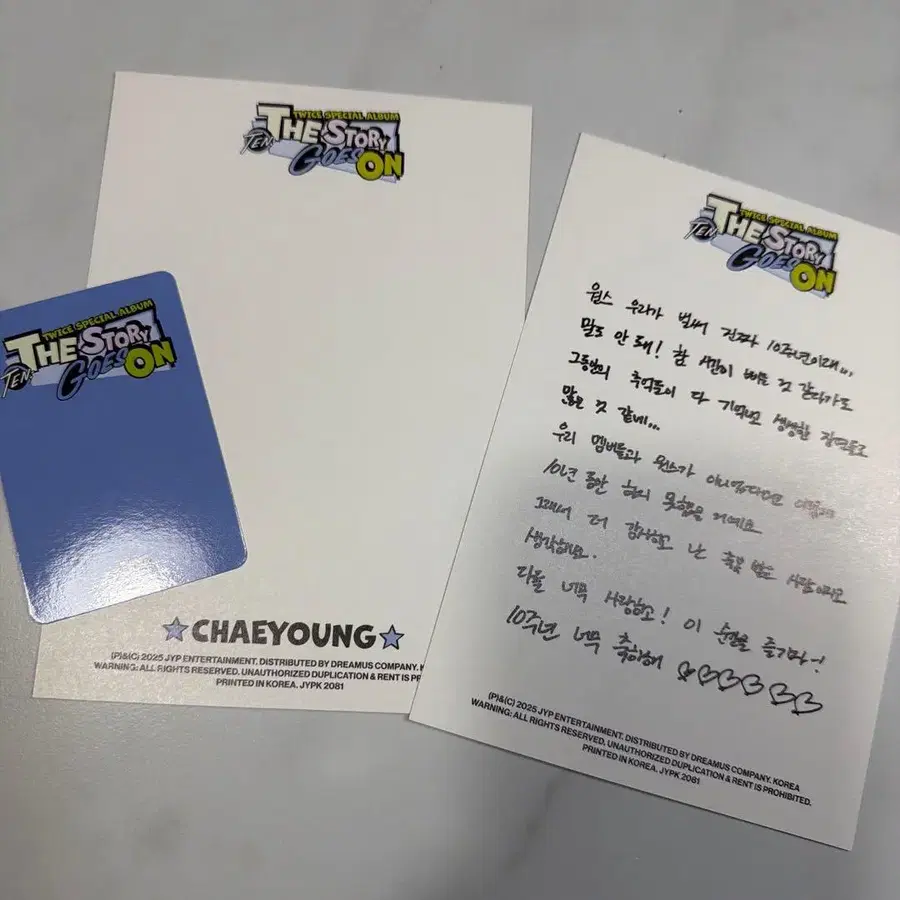 TWICE SPECIAL ALBUM
TEN: THE STORY
GOES ON
TWICE SPECIAL ALBUM
TEN: THE STORY
GOES ON
★CHAEYOUNG★
(P)&(C) 2025 JYP ENTERTAINMENT. DISTRIBUTED BY DREAMUS COMPANY. K
WARNING: ALL RIGHTS RESERVED. UNAUTHORIZED DUPLICATION & RENT IS P
PRINTED IN KOREA. JYPK 2081
TWICE SPECIAL ALBUM
TEN: THE STORY
GOES ON
원스 우리가 벌써 진짜 10주년이래...
말도 안 돼! 참 시간이 빠른 것 같다가도
그동안의 추억들이 다 기억나면 생생한 장면들로
많은 것 같네...
우리 멤버들과 원스가 아니었다면
10년 동안 하지 못했을 거예요
그래서 더 감사하고 난 축복 받은 사람이라고
생각해요.
다들 너무 사랑하고! 이 순간을 즐기자~!
10주년 너무 축하해 ♡♡♡♡♡♡
(P)&(C) 2025 JYP ENTERTAINMENT. DISTRIBUTED BY DREAMUS COMPANY. KOREA
WARNING: ALL RIGHTS RESERVED. UNAUTHORIZED DUPLICATION & RENT IS PROHIBITED.
PRINTED IN KOREA. JYPK 2081